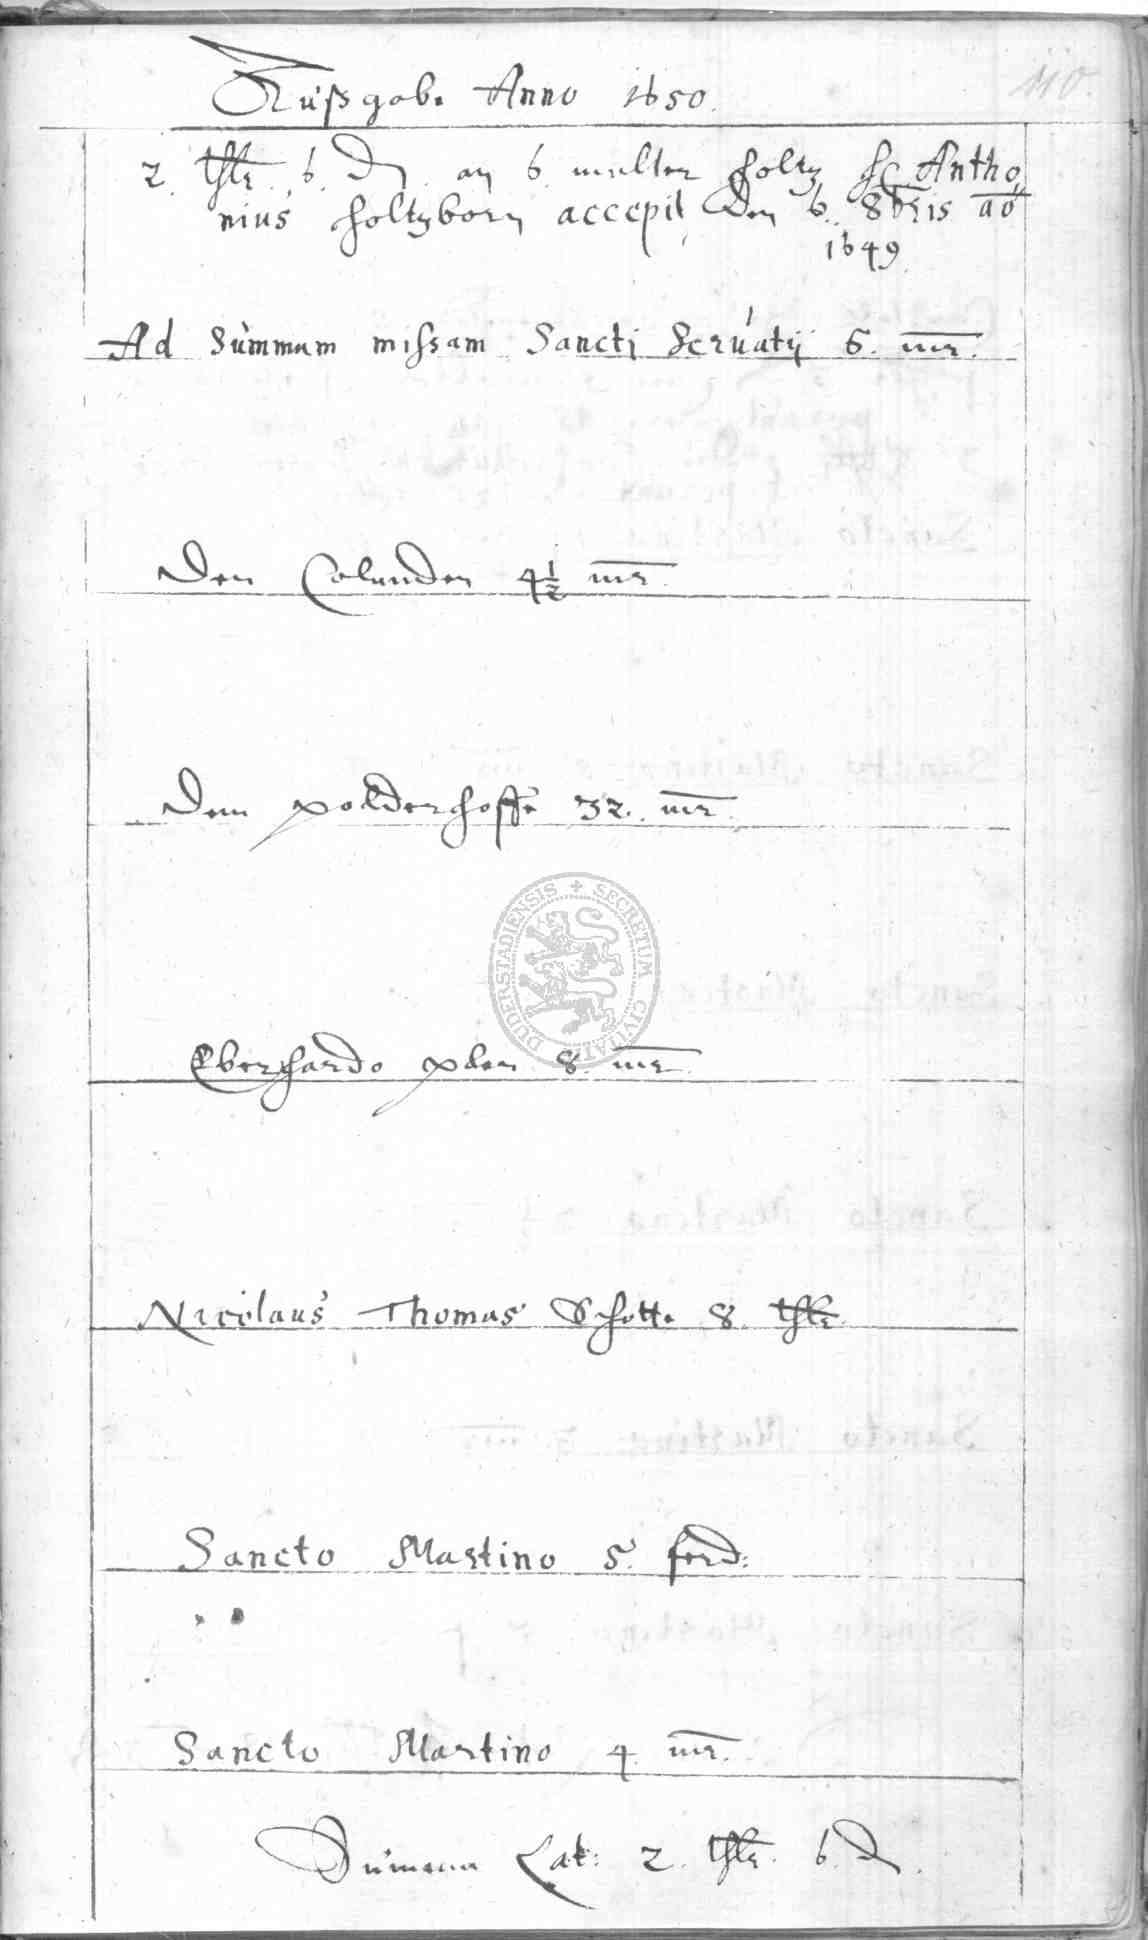 Außgabe Anno 1650.
110.
2. thlr. 6. d. an 6 malter holtz hc Antho„
nius holtzborn accepit den 6. 8bris ao
1649.
Ad Summam missam Sancti Servatij 6. mr.
Den Calanden 4½ mr.
Dem polderhoffe 32. mr.
DUDERSTADIENSIS + SECRETUM CIVITATIS
Eberhardo 8. mr.
Nicolaus Thomas Schotte 8. thlr.
Sancto Martino 5. ferd:
Sancto Martino 4. mr.
Summa Lat: 2. thlr. 6. d.